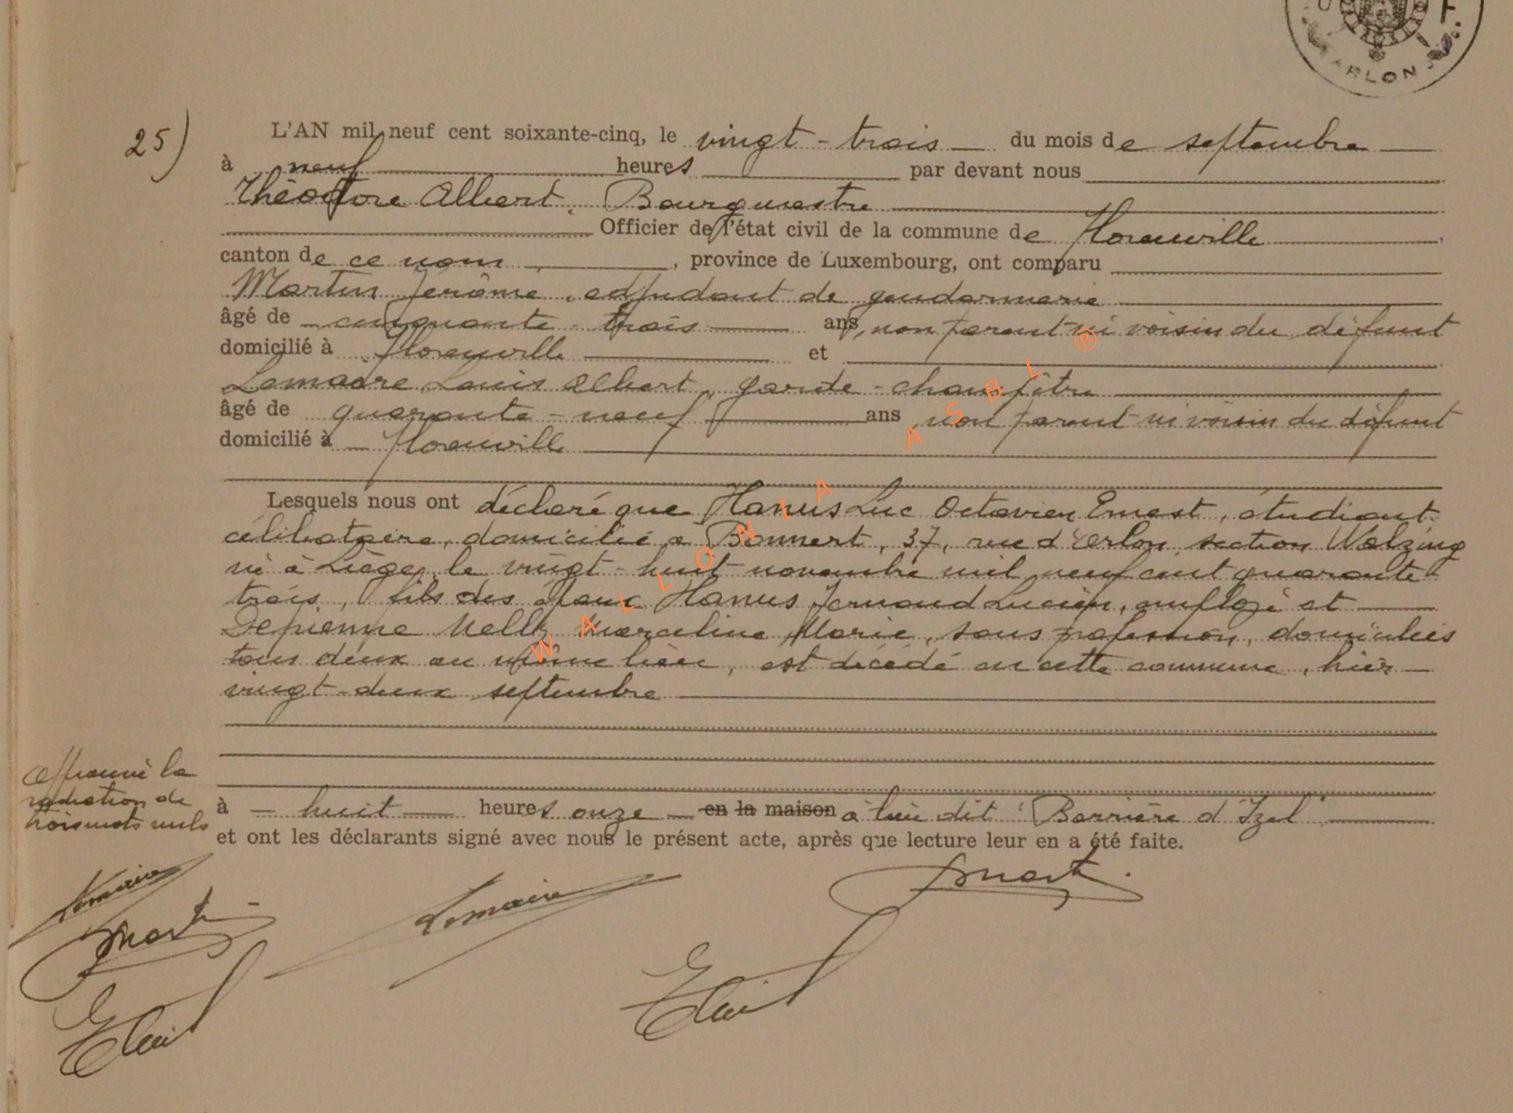 ARLON
25) L'AN mil neuf cent soixante-cinq, le vingt-trois du mois de septembre
à neuf heures par devant nous
Théodore Albert, Bourgmestre
Officier de l'état civil de la commune de Florenville
canton de ce nom, province de Luxembourg, ont comparu
Martin Jérôme, adjudant de gendarmerie
âgé de cinquante-trois ans, non parent ni voisin du défunt
domicilié à Florenville et
Lemaire Louis Albert, garde-champêtre
âgé de quarante-neuf ans, non parent ni voisin du défunt
domicilié à Florenville
Lesquels nous ont déclaré que Hanus Luc Octavien Ernest, étudiant
célibataire, domicilié à Bonnert, 37, rue d'Arlon section Walzing
né à Liège, le vingt-huit novembre mil neuf cent quarante-
trois, fils des époux Hanus Fernand Lucien, employé et
Depienne Nelly Marceline Marie, sans profession, domiciliés
tous deux au même lieu, est décédé en cette commune, hier
vingt-deux septembre
à huit heures onze en la maison à lieu dit "Barrière d'Izel"
et ont les déclarants signé avec nous le présent acte, après que lecture leur en a été faite.
Approuvé la
radiation de
trois mots nuls
Lemaire
Lemaire
WALLONIA ASBL ®